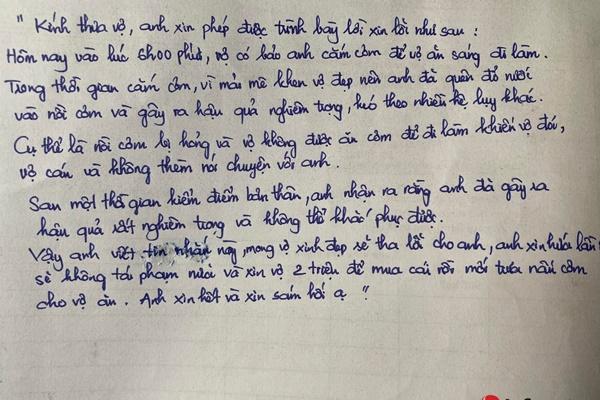 " Kính thưa vợ, anh xin phép được trình bày lời xin lỗi như sau :
Hôm nay vào lúc 6h00 phút, vợ có bảo anh cắm cơm để vợ ăn sáng đi làm.
Trong thời gian cắm cơm, vì mải mê khen vợ đẹp nên anh đã quên đổ nước
vào nồi cơm và gây ra hậu quả nghiêm trọng, kéo theo nhiều hệ lụy khác.
Cụ thể là nồi cơm bị hỏng và vợ không được ăn cơm để đi làm khiến vợ đói,
vợ cáu và không thèm nói chuyện với anh.
Sau một thời gian kiểm điểm bản thân, anh nhận ra rằng anh đã gây ra
hậu quả rất nghiêm trọng và không thể khắc phục được.
Vậy anh viết tin nhắn này, mong vợ xinh đẹp sẽ tha lỗi cho anh, anh xin hứa lần
sẽ không tái phạm nữa và xin vợ 2 triệu để mua cái nồi mới tựa nấu cơm
cho vợ ăn. Anh xin hết và xin sám hối ạ "